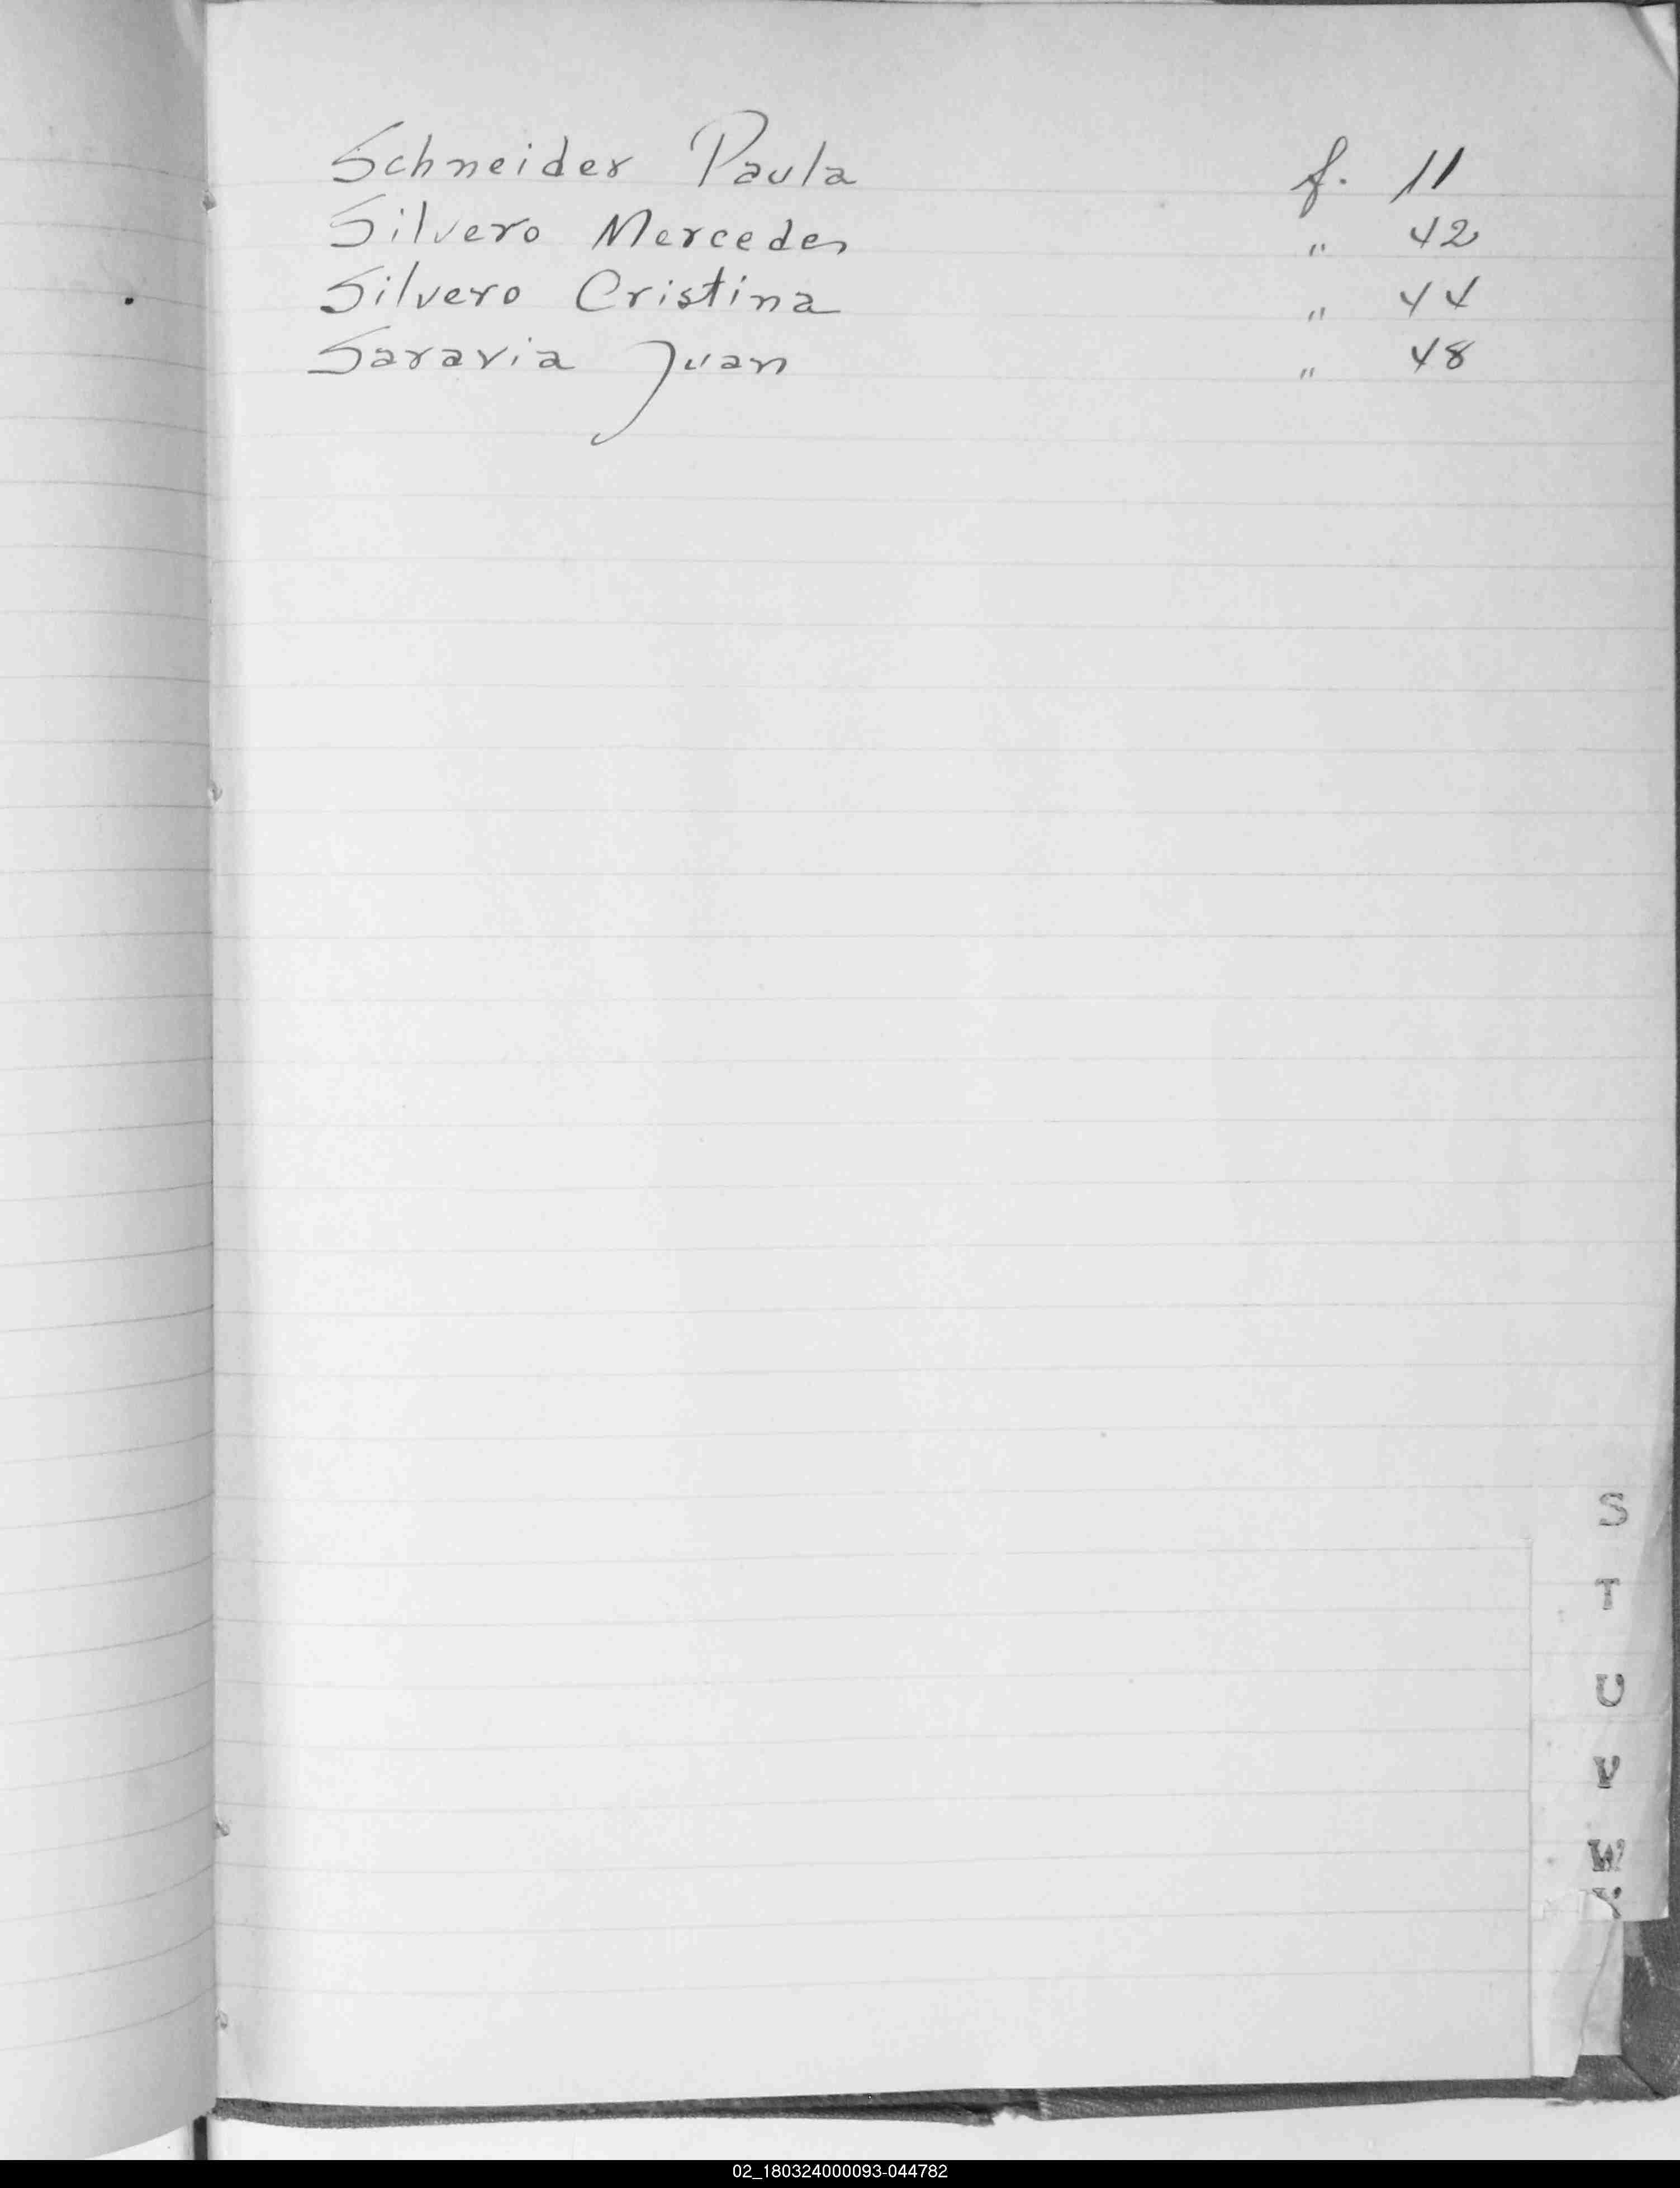 Schneider Paula f. 11
Silvero Mercedes " 42
Silvero Cristina " 44
Saravia Juan " 48
S
T
U
V
W
02_180324000093-044782